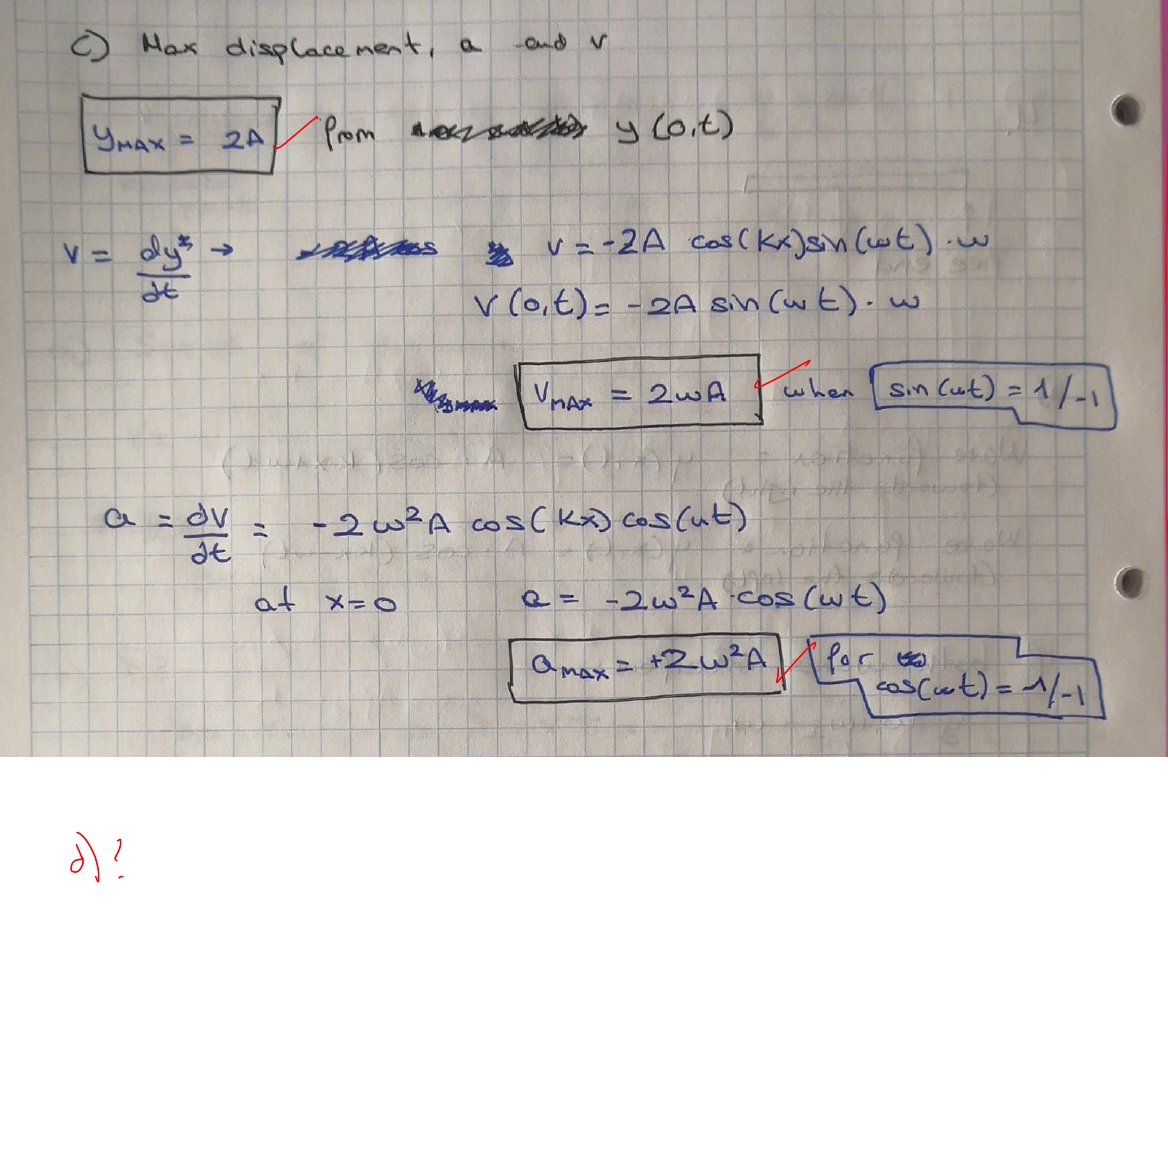 c) Max displacement, a and v
yMAX = 2A from y(0,t)
v = dy/dt → v = -2A cos(kx)sin(ωt) · ω
v(0,t) = -2A sin(ωt) · ω
VMAX = 2ωA when sin(ωt) = 1/-1
a = dV/dt = -2ω²A cos(kx) cos(ωt)
at x=0 a = -2ω²A · cos(ωt)
aMAX = +2ω²A for
cos(ωt) = 1/-1
d)?